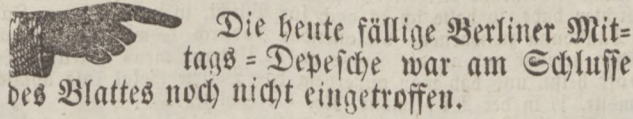 Die heute fällige Berliner Mit=
tags=Depeſche war am Schluſſe
des Blattes noch nicht eingetroffen.